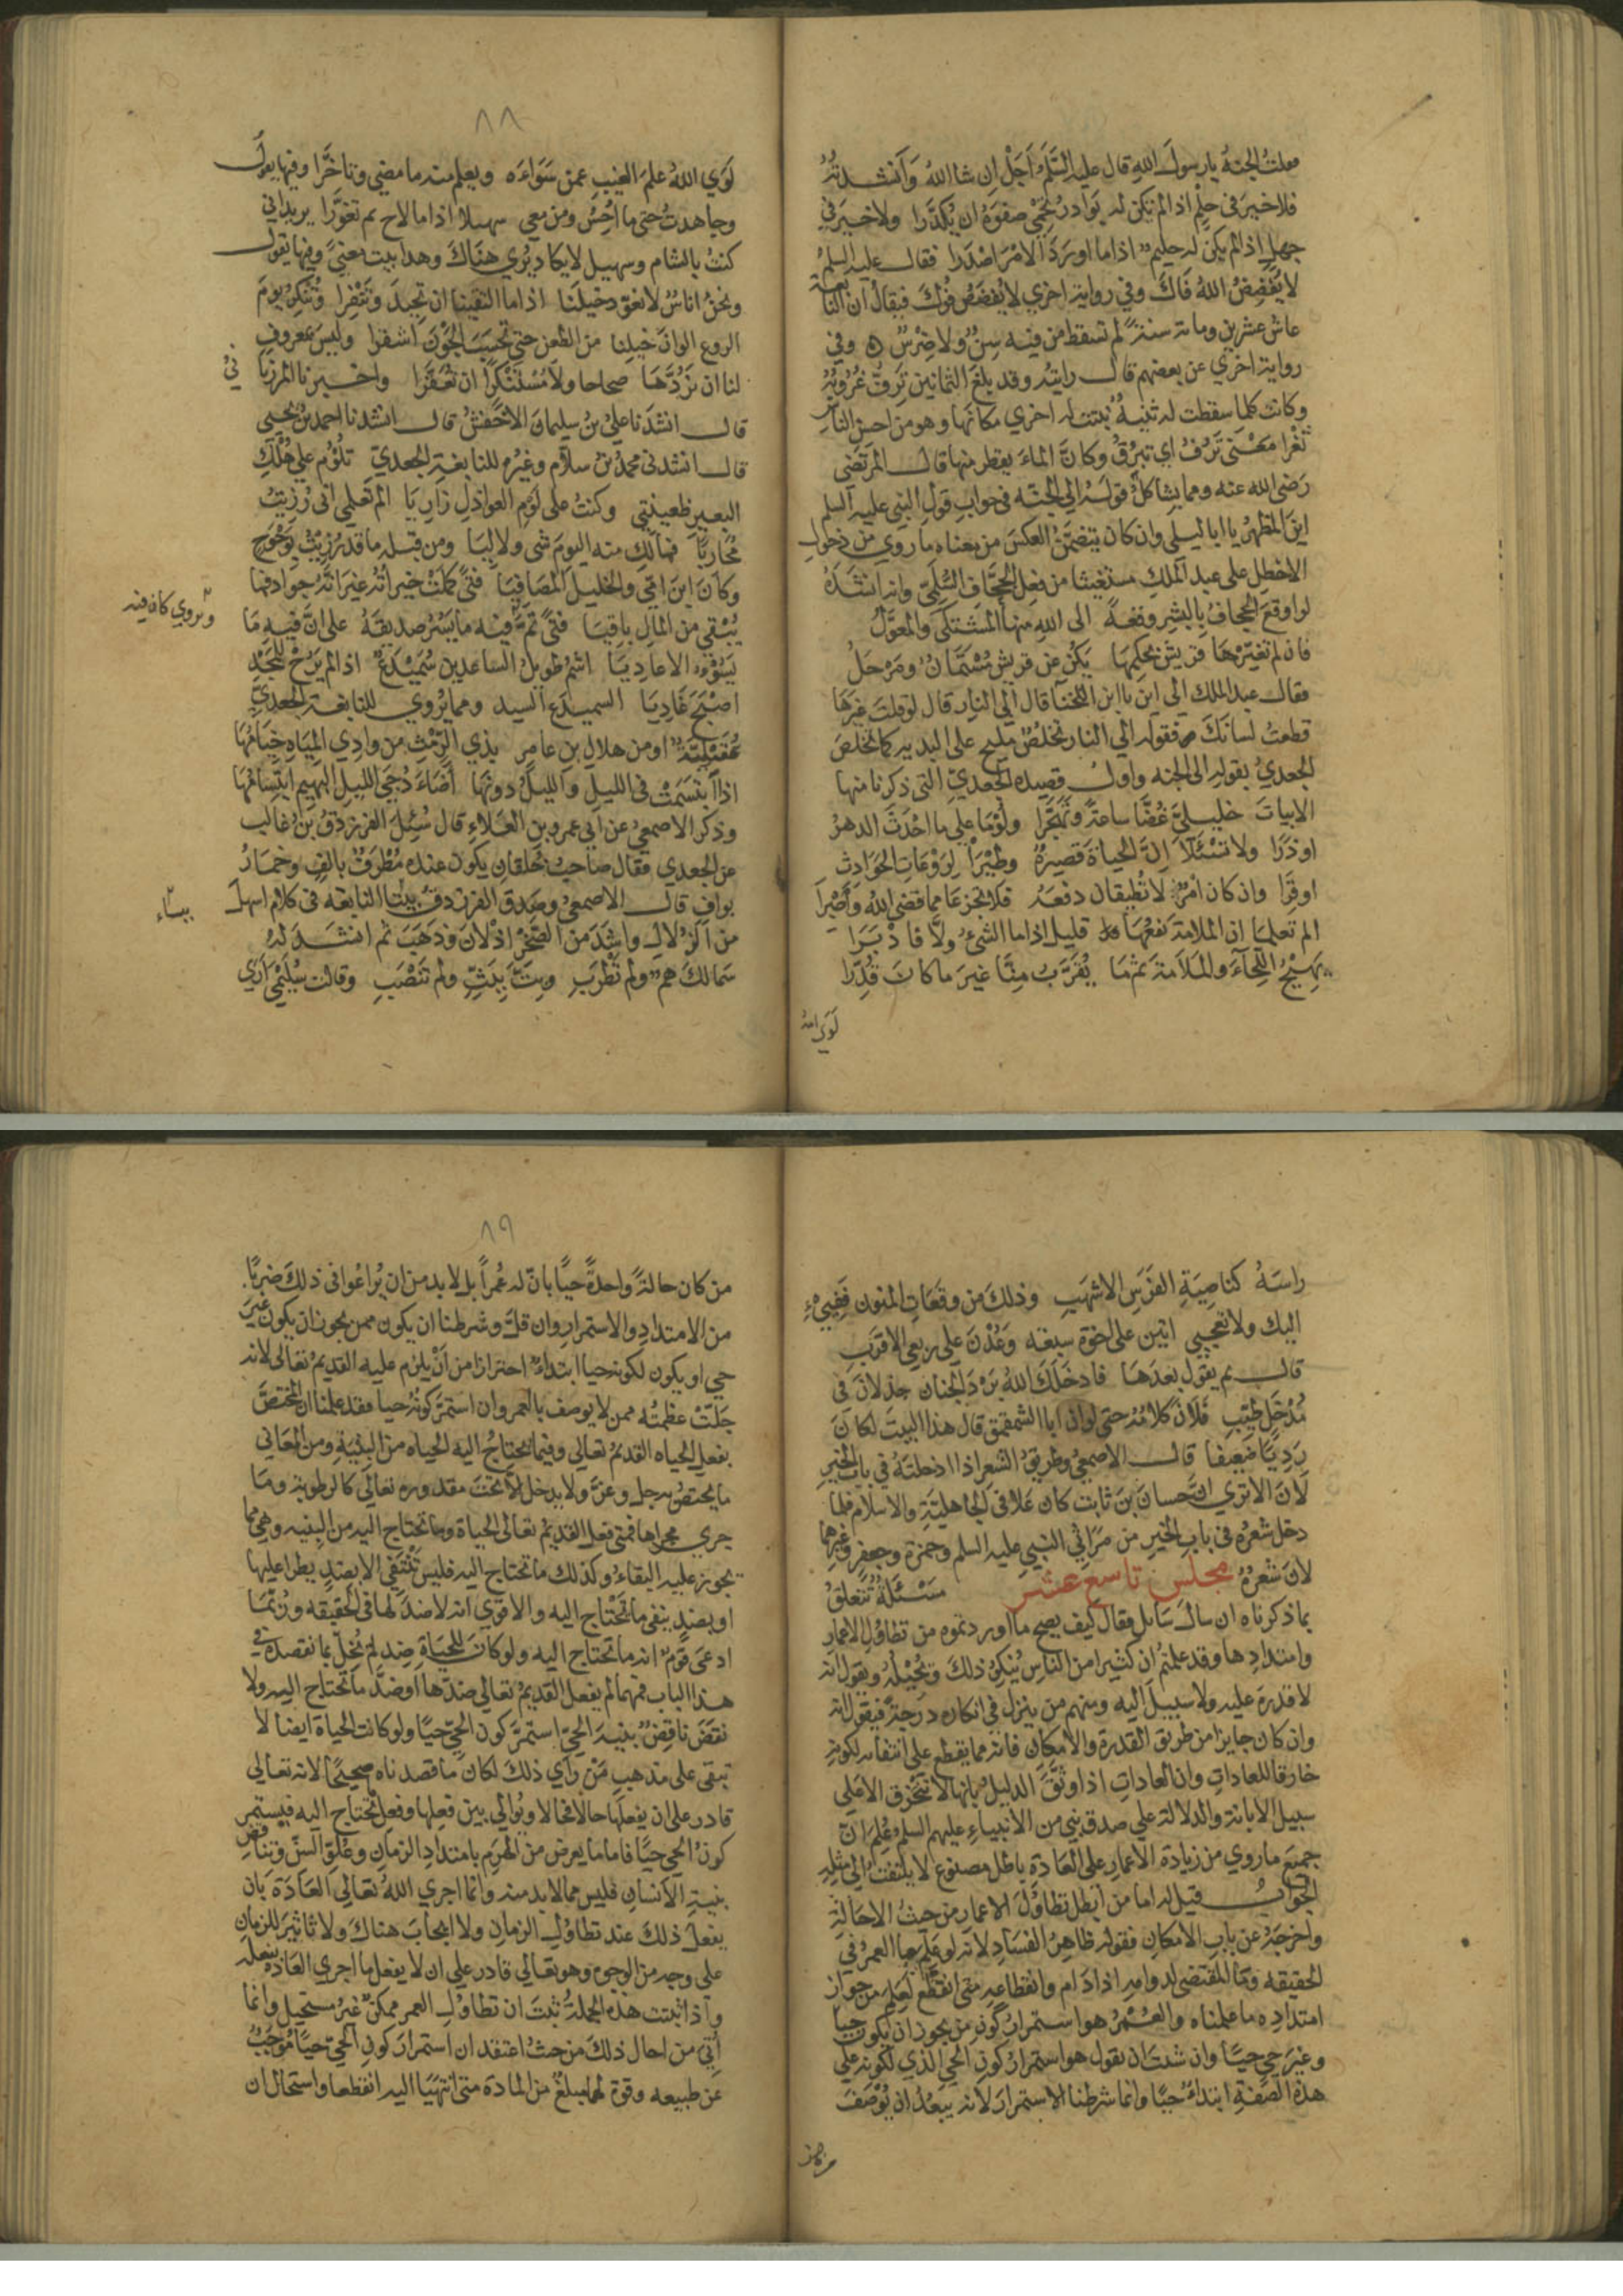 فقلت الجنة يا رسول الله قال عليه السّلم أجل ان شا الله وأنشدته
فلا خير في حلم اذا لم تكن له بوادر تحمي صفوه ان يُكدّرا ولا خير في
جهل اذا لم يكن له حليم اذا ما اورد الامر اصدرا فقال عليه السلم
لا يفضض الله فاك وفي رواية اخري لا يفضض فوك فيقال ان النابغة
عاش عشرين ومائة سنة لم تسقط من فيه سن ولا ضرس ۞ وفي
رواية اخري عن بعضهم قال رايته وقد بلغ الثمانين ترف غروبه
وكانت كلما سقطت له ثنية نبتت له اخري مكانها وهو من احسن الناس
ثغرا معنى ترف اي تبرق وكان الماء يقطر منها قال المرتضى
رضى الله عنه ومما يشاكل قوله الي الجنه في جواب قول النبي عليه السلم
اين المظهر يا ابا ليلى وان كان يتضمن العكس من معناه ما روي من دخول
الاخطل على عبد الملك مستغيثا من فعل الجحاف السلمي وانه انشده
لو اوقع الجحاف بالبشر وقعة الى الله منها المشتكى والمعول
فان لم تغيرها قريش بحكمها يكن عن قريش مستمان ومزحل
فقال عبد الملك الي اين يا ابن اللخنا قال الي النار قال لو قلت غيرها
قطعت لسانك فقوله الي النار تخلص مليح على البديه كما تخلص
الجعدي بقوله الى الجنه واول قصيدة الجعدي التي ذكرنا منها
الابيات خليلي غضا ساعة وتهجرا ولوما على ما احدث الدهر
او ذرا ولا تسئلا ان الحياة قصيرة وطيرا لروعات الحوادث
او قرا وان كان امر لا تطيقان دفعه فلا تجزعا مما قضى الله واصبرا
الم تعلما ان الملامة نفعها قليل اذا ما الشئ ولا فادبرا
تهيج اللحاء والملامة ثم ما يقرب منا غير ما كان قدرا
لوي الله
٨٨
لوي الله علم الغيب عمن سواءه ويعلم منه ما مضي وتاخرا وفيها يقول
وجاهدت حتى ما احس ومن معي سهيلا اذا ما لاح ثم تغورا يريد اني
كنت بالشام وسهيل لا يكاد يري هناك وهذا بيت معنى وفيها يقول
ونحن اناس لا نعود خيلنا اذا ما التقينا ان تحيد وتنفرا وننكر يوم
الروع الوان خيلنا من الطعن حتى تحسب الجون اشقرا وليس بمعروف
لنا ان نردها صحاحا ولا مستنكرا ان تعقرا واخبرنا المرزبا ني
قال انشدنا علي بن سليمان الاخفش قال انشدنا احمد بن يحيى
قال انشدني محمد بن سلام وغيره للنابغة الجعدي تلوم علي هلك
البعير ظعينتي وكنت على لوم العواذل زاريا الم تعلمي اني رزيت
محاربا فمالك منه اليوم شى ولا ليا ومن قبله ما قد رزيت بوحوح
وكان ابن امي والخليل المصافيا فتى كملت خيراته غير انه جواد فما
يبقي من المال باقيا فتى تم فيه ما يسر صديقه على ان فيه ما
وتروي كان فيه
يسوءه الاعاديا اشم طويل الساعدين سميدع اذا لم يرح للمجد
اصبح غاديا السميدع السيد ومما يروي للنابغة الجعدي
عقيلية او من هلال بن عامر بذي الرمث من وادي المياه خيامها
اذا ابتسمت في الليل والليل دونها أضاء دجى الليل البهيم ابتسامها
وذكر الاصمعي عن أبي عمرو بن العلاء قال سئل الفرزدق بن غالب
عن الجعدي فقال صاحب خلقان يكون عنده مطرف بالف وخمار
بواف قال الاصمعي وصدق الفرزدق بينا النابغه في كلام اسهل
بيناء
من الزلال واشد من الصخر اذ لان وذهب ثم انشد له
سمالك هم ولم تطرب وبت ببث ولم تنصب وقالت سليمي اري
راسه كناصية الفرس الاشهب وذلك من وقعات المنون ففيئ
اليك ولا تعجبي اتين على اخوة سبعه وعدن على ربعي الاقرب
قال ثم يقول بعدها فادخلك الله برد الجنان جذلان في
مدخل طيب فلان كلامه حتى لو ان ابا الشمقمق قال هذا البيت لكان
رديا ضعيفا قال الاصمعي وطريق الشعر اذا ادخلته في باب الخير
لان الا تري ان حسان بن ثابت كان علا في الجاهلية والاسلام فلما
دخل شعره في باب الخير من مراثي النبي عليه السلم وحمزة وجعفر وغيرهما
لان شعره مجلس تاسع عشر مسئلة تتعلق
بما ذكرناه ان سال سايل فقال كيف يصح ما اوردتموه من تطاول الاعمار
وامتدادها وقد علمتم ان كثيرا من الناس ينكر ذلك ويحيله ويقول انه
لا قدرة عليه ولا سبيل اليه ومنهم من ينزل في انكاره درجة فيقول انه
وان كان جايزا من طريق القدرة والامكان فانه مما يقطع على انتفائه لكونه
خارقا للعادات وان العادات اذا وثق الدليل بانها لا تنخرق الا على
سبيل الابانة والدلالة علي صدق نبي من الانبياء عليهم السلم علم ان
جميع ما روي من زيادة الاعمار على العادة باطل مصنوع لا يلتفت الي مثله
الجواب قيل له اما من ابطل تطاول الاعمار من حيث الاحالة
واخرجه عن باب الامكان فقوله ظاهر الفساد لانه لو علم ما العمر في
الحقيقه وما المقتضي لدوامه اذا دام وانقطاعه متى انقطع لعلم من جواز
امتداده ما علمناه والعمر هو استمرار كون من يجوز ان يكون حيا
وغير حي حيا وان شئت ان تقول هو استمرار كون الحي الذي لكونه على
هذه الصفة ابتداء حيا وانما شرطنا الاستمرار لانه يبعد ان يوصف
من كان
٨٩
من كان حالة واحدة حيا بان له عمرا بل لا بد من ان يراعوا في ذلك ضربا
من الامتداد والاستمرار وان قل وشرطنا ان يكون ممن يجوز ان يكون غير
حي او يكون لكونه حيا ابتداء احترازا من أن يلزم عليه القديم تعالى لانه
جلت عظمته ممن لا يوصف بالعمر وان استمر كونه حيا فقد علمنا ان المختص
بفعل الحياه القديم تعالي وفيما يحتاج اليه الحياه من البنية ومن المعاني
ما يختص به جل وعز ولا يدخل الا تحت مقدوره تعالي كالرطوبة وما
جري مجراها فمتى فعل القديم تعالى الحياة وما تحتاج اليه من البنيه وهي مما
يجوز عليه البقاء وكذلك ما تحتاج اليه فليس تنتفي الا بضد يطرا عليها
او بضد ينفي ما تحتاج اليه والاقوي انه لا ضد لها في الحقيقه وربما
ادعى قوم انه ما تحتاج اليه ولو كان للحياة ضد لم يخل بما نقصده في
هذا الباب فمهما لم يفعل القديم تعالي ضدها أو ضد ما تحتاج اليه ولا
نقض ناقض بنية الحي استمر كون الحي حيا ولو كانت الحياة ايضا لا
تبقى على مذهب من رأي ذلك لكان ما قصدناه صحيحا لانه تعالي
قادر على ان يفعلها حالا فحالا ويوالي بين فعلها وفعل ما تحتاج اليه فيستمر
كون الحي حيا فاما ما يعرض من الهرم بامتداد الزمان وعلو السن وتناقض
بنية الانسان فليس مما لا بد منه وانما اجري الله تعالي العادة بان
يفعل ذلك عند تطاول الزمان ولا ايجاب هناك ولا تاثير للزمان
على وجه من الوجوه وهو تعالي قادر علي ان لا يفعل ما اجري العادة بفعله
واذا ثبتت هذه الجملة ثبت ان تطاول العمر ممكن غير مستحيل وانما
أتي من احال ذلك من حيث اعتقد ان استمرار كون الحي حيا موجب
عن طبيعه وقوة لهما مبلغ من المادة متى انتهيا اليه انقطعا واستحال ان